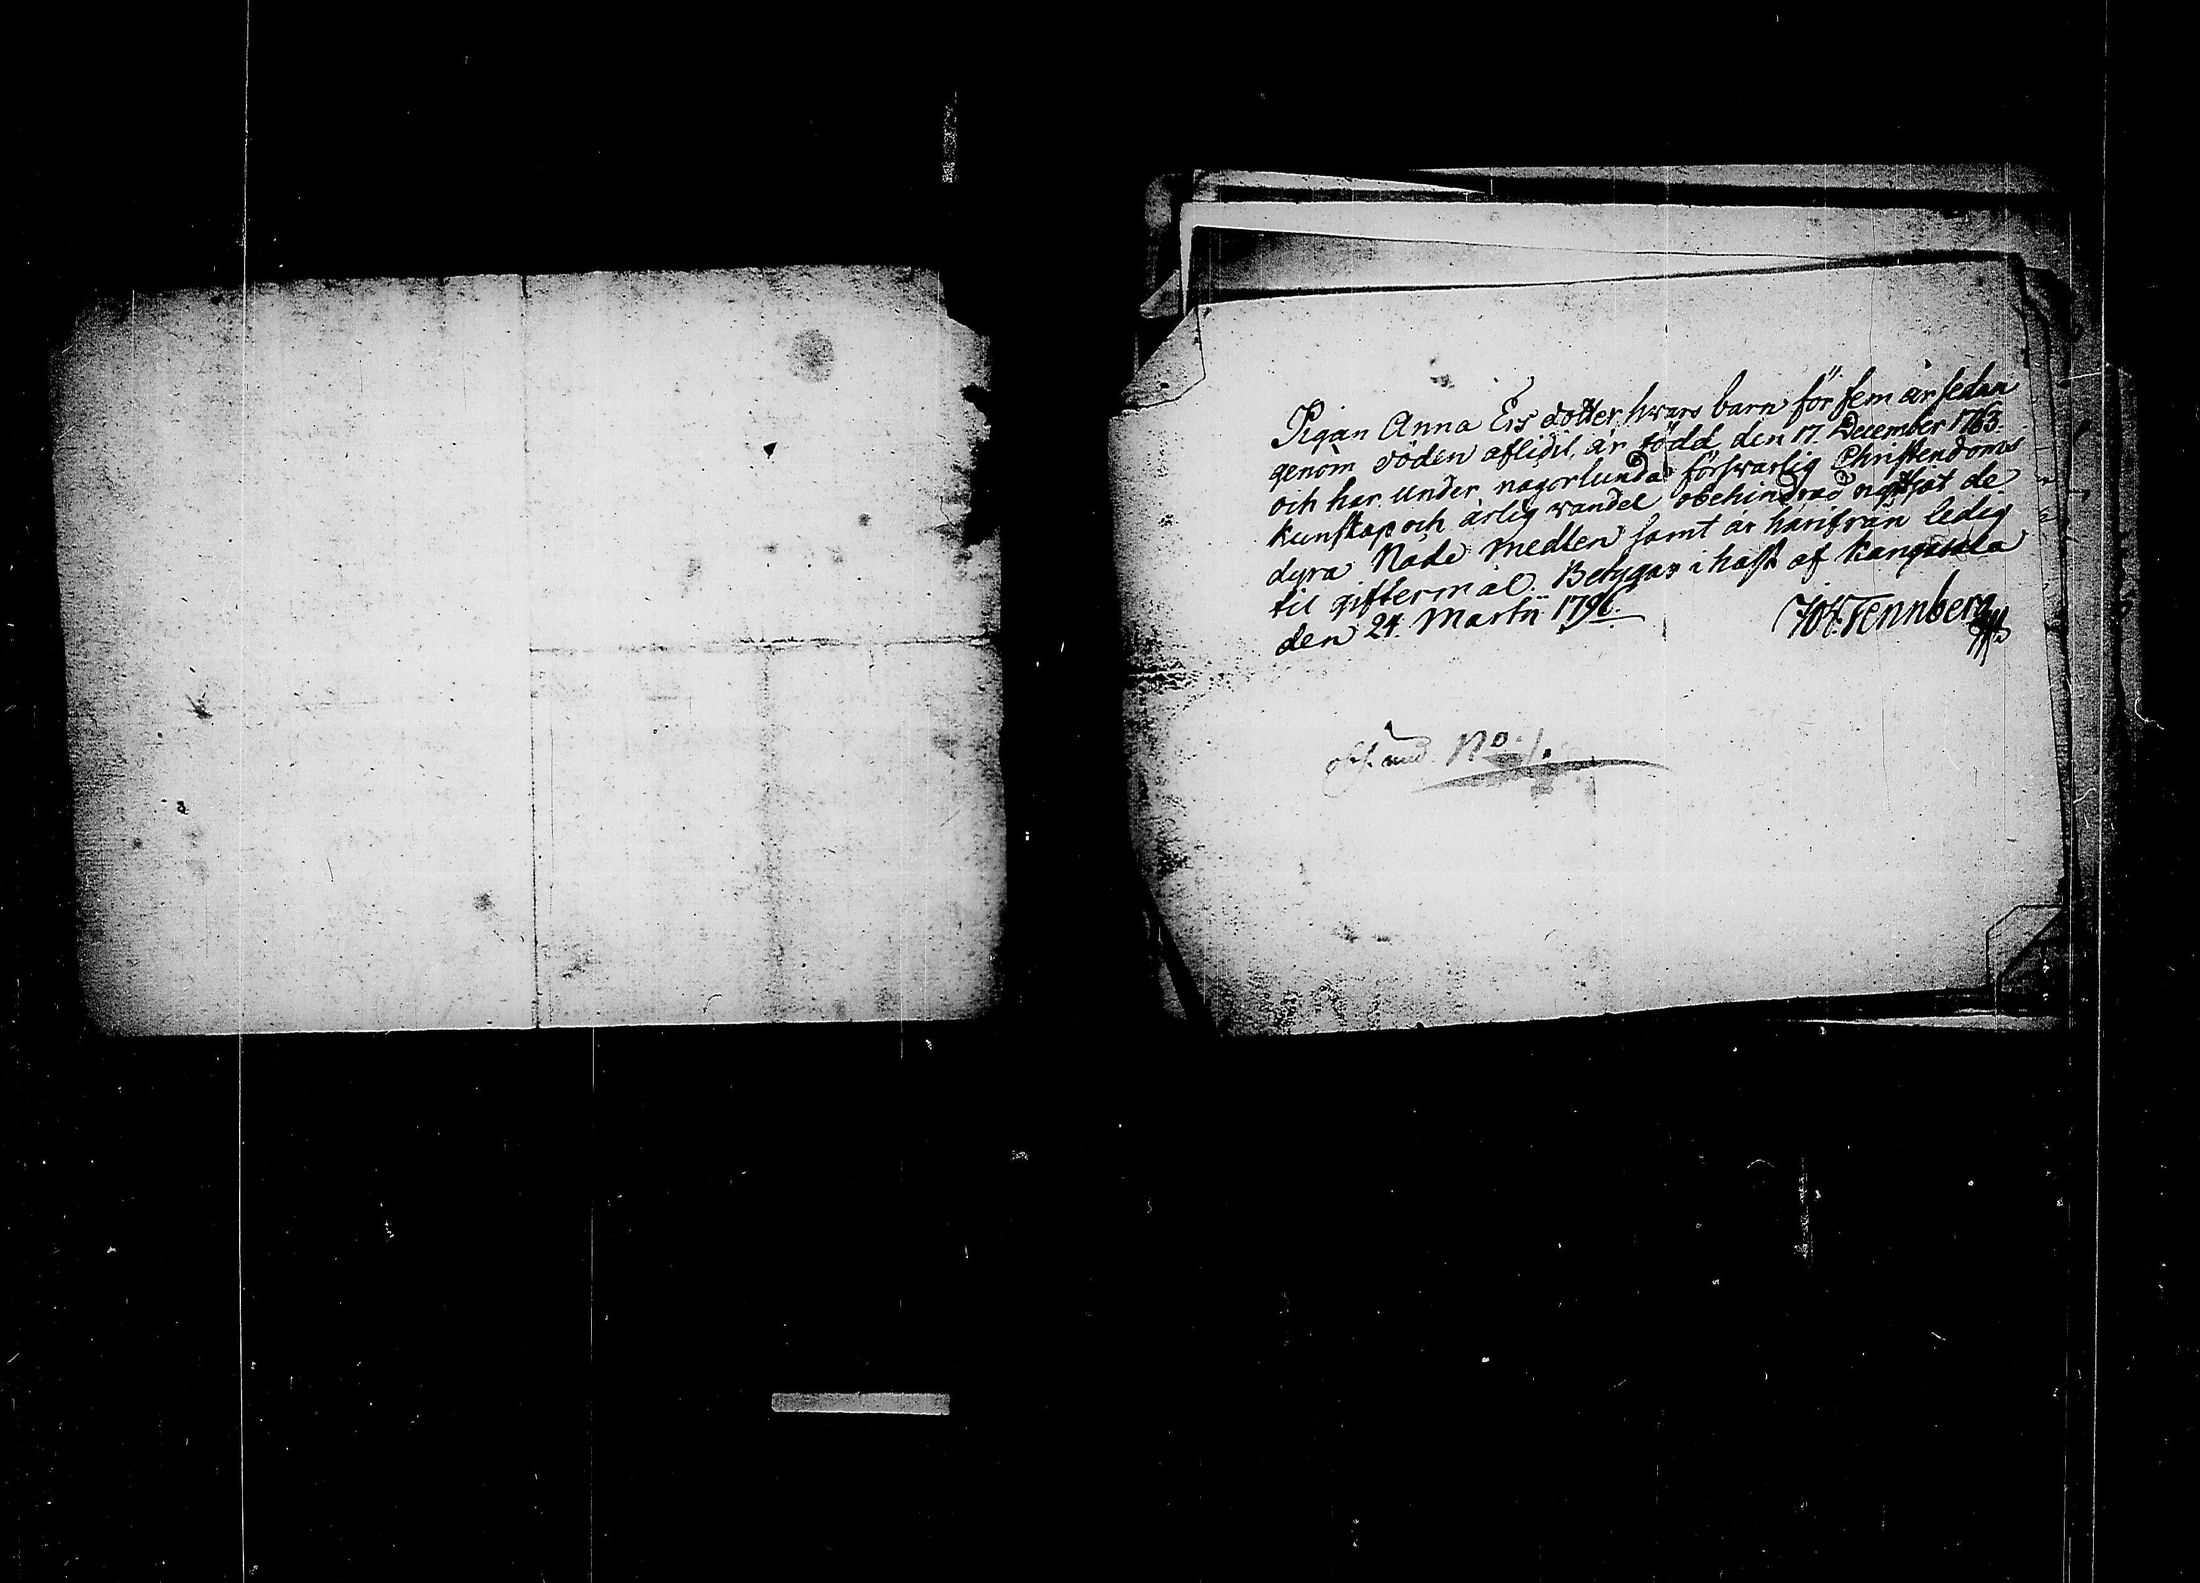 Pigan Anna Ers dotter, hwars barn för fem år sedan
genom döden aflidit, är född den 17. December 1763.
och har under någorlunda förswarlig Christendoms
kunskap och ärlig wandel obehindrad nyttjat de
dyra Nåde medlen samt är härifrån ledig
til giftermål. Betygar i hast af Kangasala
den 24. Martii 1796.
Joh. Tennberg
No. 1.